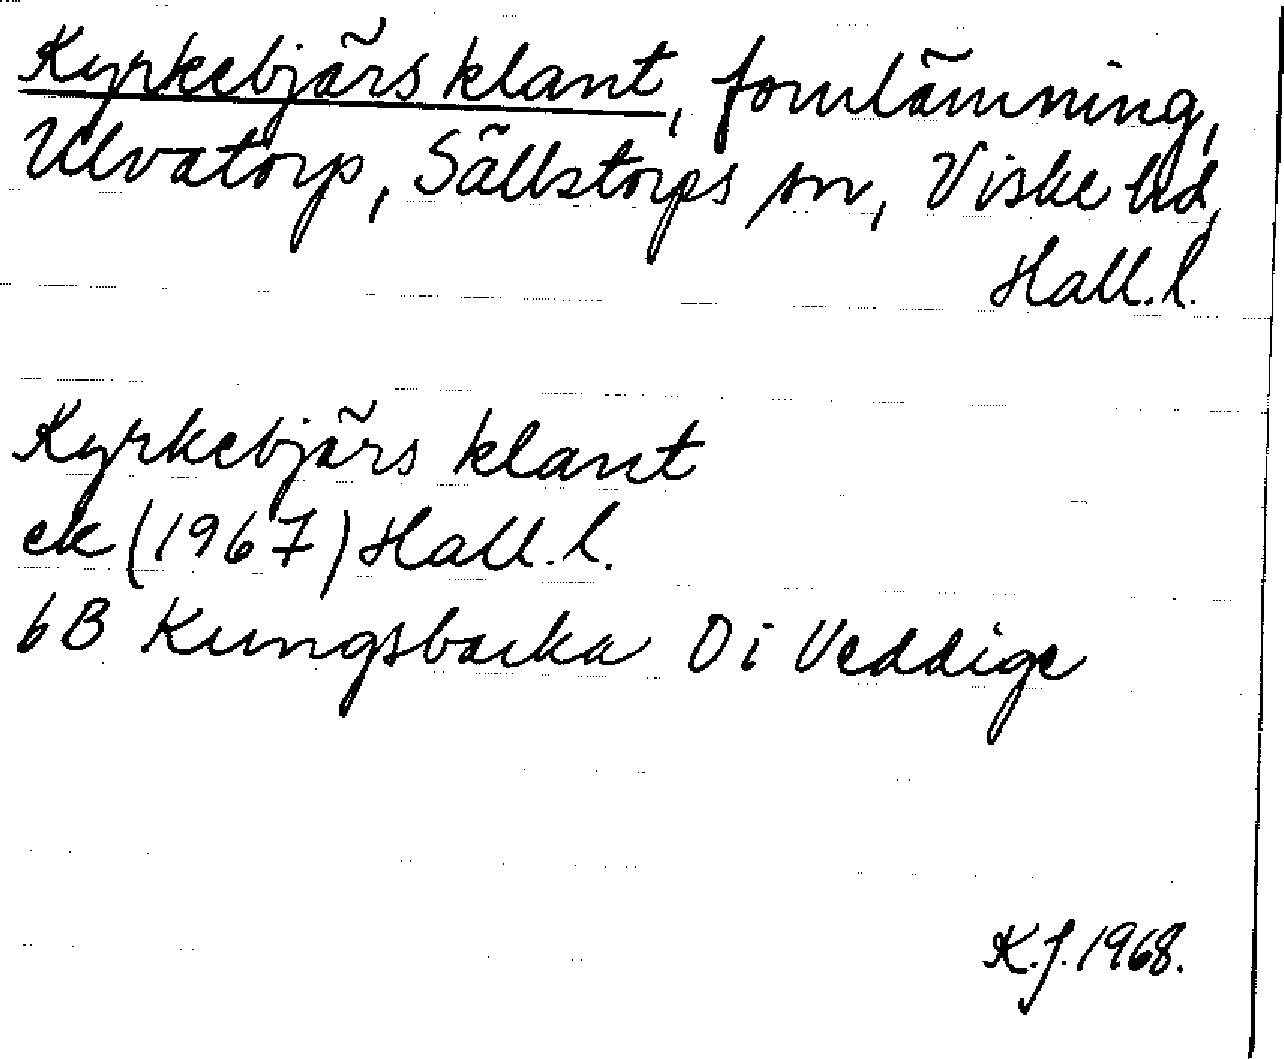 Kyrkebjärs klant, fornlämning,
Ulvatorp, Sällstorps sn, Viske hd,
Hall.l.
Kyrkebjärs klant
ek (1967) Hall.l.
6B Kungsbacka 0i Veddige
K.J. 1968.